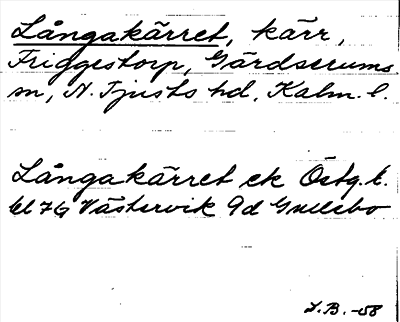 Långakärret, kärr,
Friggestorp, Gärdserums
sn, N. Tjusts hd, Kalm. l.
Långakärret ek Östg. l.
bl 7G Västervik 9d Gullebo
S.B. -58